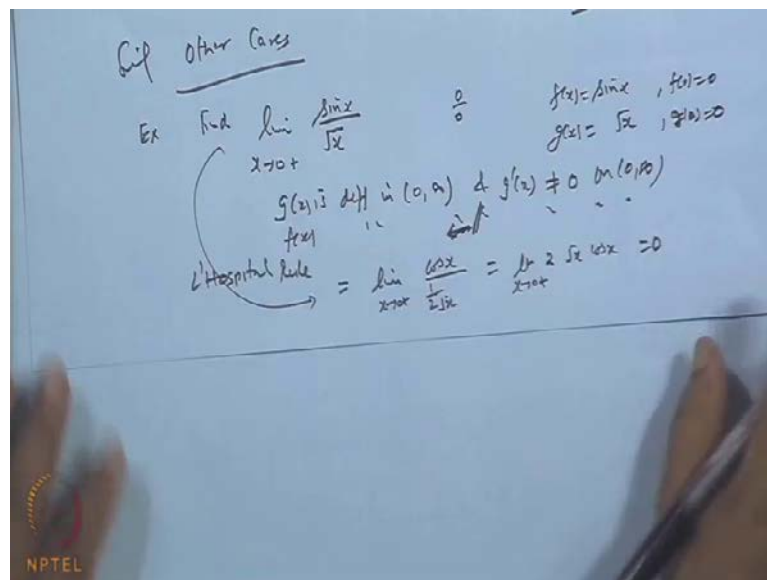 Other Cases
Ex Find lim x→0+ sinx/√x 0/0 f(x)= sinx , f(0)=0
g(x)= √x , g(0)=0
g(x) is diff in (0,∞) & g'(x) ≠ 0 on (0,∞)
f(x) " " " "
L'Hospital Rule = lim x→0+ cosx/(1/(2√x)) = lt x→0+ 2 √x cosx =0
NPTEL